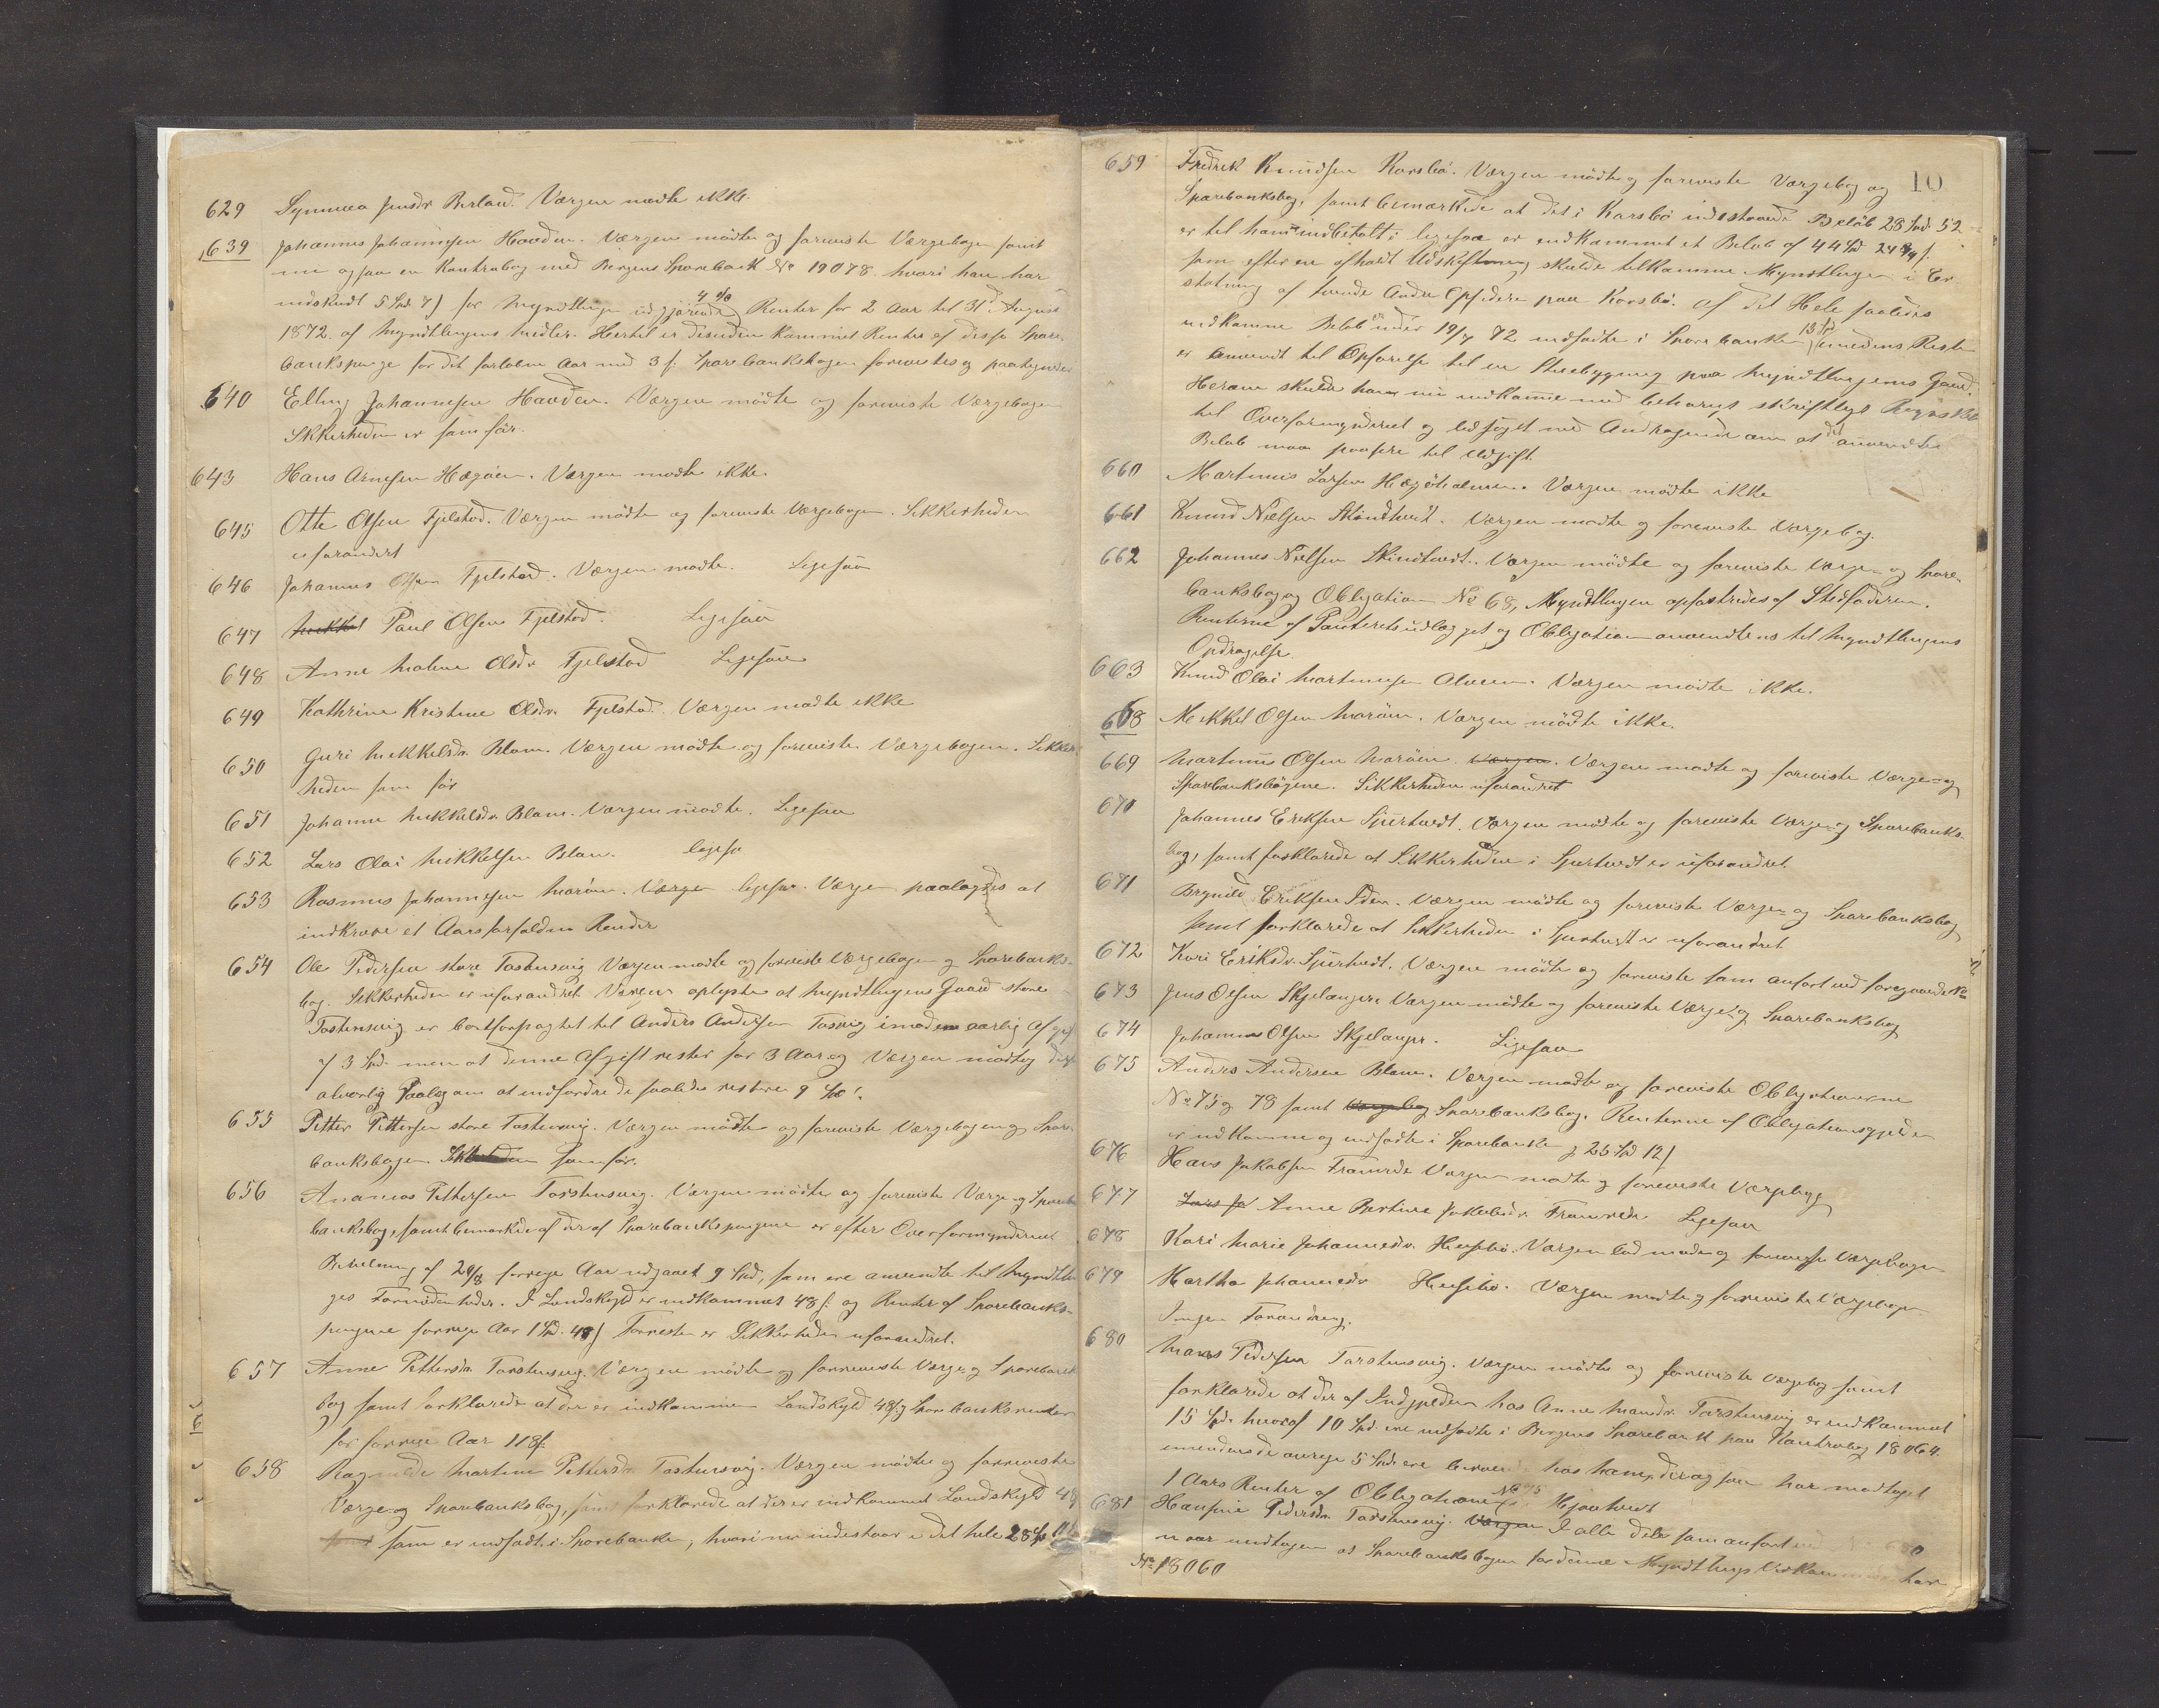 629 Synneva Jensdr Berland. Værgen mødte ikke.
639 Johannes Johannesen Houden. Værgen mödte og foreviste Værgebogen samt
nu ogsaa en Kontrabog med Bergens Sparebank No 19078 hvori han har
indskudt 5 Spd 7 s for Myndtlingen udgjörende 4 % Renter for 2 Aar til 31 August
1872 af Myndtlingens Midler. Hertil er desuden kommet Renter af disse Spare-
bankspenge for det forlöbne Aar med 3 s. Sparebankbogen forevistes og
640 Elling Johannesen Houden. Værgen mödte og foreviste Værgebogen
Sikkerheden er som för.
643 Hans Arnesen Hægöen. Værgen mødte ikke.
645 Otte Olsen Fjelstad. Værgen mödte og foreviste Værgebogen. Sikkerheden
uforandret
646 Johannes Olsen Fjelstad. Værgen mødte. Ligesaa
647 Paul Olsen Fjelstad. Ligesaa
648 Anne Malene Olsdr Fjelstad Ligesaa
649 Kathrine Kristine Olsdr. Fjelstad. Værgen mødte ikke
650 Guri Mikkelsdr. Blom. Værgen mödte og foreviste Værgebogen. Sikker-
heden som för
651 Johanne Mikkelsdr Blom. Værgen mødte. Ligesaa
652 Lars Olai Mikkelsen Blom. ligesa
653 Rasmus Johannesen Maröen. Værgen ligesaa. Værgen paalagdes at
indkræve et Aars forfaldne Renter
654 Ole Pedersen store Tostensvig Værgen mødte og foreviste Værgebogen og Sparebanks-
bog. Sikkerheden er uforandret Værgen oplyste at Myndtlingens Gaard store
Tostensvig er bortforpagtet til Anders Andersen Tosvig imod en aarlig Afgift
af 3 Spd. men at denne Afgift rester for 3 Aar og Værgen modtog
alvorlig Paalæg om at indfordre de saaledes restere 9 Spd.
655 Petter Pettersen store Tostensvig. Værgen mødte og foreviste Værgebogen og Spare-
banksbogen. Sikkerheden som för.
656 Ananias Pettersen Tostensvig. Værgen mödte og foreviste Værge og Spare-
banksbog, samt bemærkede at der af Sparebankspengene er efter Overformynderiets
Bevilling af 29/8 forrige Aar udgaaet 9 Spd, som ere anvendte til Myndtlin-
ges Fornödenheder. I Landskyld er indkommet 48 s. og Renter af Sparebanks-
pengene forrige Aar 1 Spd. 48 s Forresten er Sikkerheden uforandret.
657 Anne Pettersdr Tostensvig. Værgen mödte og forreviste Værge og Sparebank
bog samt forklarede at der er indkommen Landskyld 48 s og Sparebanksrenter
for forrige Aar 118 s.
658 Ragnilde Martine Pettersdr Tostensvig. Værgen mödte og forreviste
Værge og Sparebanksbog, samt forklarede at der er indkommet Landskyld 48
som er indsadt i Sparebanken, hvori nu indestaar i det hele 28 Spd 11 s
10
659 Fredrik Knudsen Korsbö. Værgen mödte og foreviste Værgebog og
Sparebanksbog, samt bemærkede at det i Korsbö indestaaende Belöb 28 Spd 52
er til ham indbetalt, ligesaa er indkommet et Belöb af 44 Spd 24 s
som efter en afholdt Udskiftning skulde tilkomme Myndtlingen i Er-
statning af tvende Andre Opsiddere paa Korsbö. Af det Hele saaledes
indkomne Belöb er under 19/7 72 indsadte i Sparebanken 13 Spd, imedens Resten
er anvendt til Opförelse til en Stuebygning paa Myndtlingens Gaard.
Herom skulde han nu indkomme med behørigt skriftligt Regnskab
til Overformynderiet og ledsaget med Andragende om at det anvendte
Belöb maa passere til Udgift.
660 Martinus Larsen Hægöholmen. Værgen mödte ikke
661 Knud Nielsen Skindtvedt. Værgen mødte og foreviste Værgebog.
662 Johannes Nielsen Skindtvedt. Værgen mödte og foreviste Værge- og Spare-
banksbog og Obligation No 68, Myndtlingen opfostredes af Stedfaderen.
Renterne af Panteretsudlægget og Obligation anvendtes til Myndtlingens
Opdragelse.
663 Knud Olai Martinusen Alveen. Værgen mödte ikke.
668 Mikkel Olsen Maröen. Værgen mödte ikke.
669 Martinus Olsen Maröen Værgen. Værgen mødte og foreviste Værge- og
Sparebanksbögene. Sikkerheden uforandret
670 Johannes Eriksen Spurtvedt. Værgen mødte og foreviste Værge- og Sparebanks-
bog, samt forklarede at Sikkerheden i Spurtvedt er uforandret.
671 Brynild Eriksen Iden. Værgen mödte og foreviste Værge- og Sparebanksbog
samt forklarede at Sikkerheden i Spurtvedt er uforandret
672 Kari Eriksdr. Spurtvedt. Værgen mödte og foreviste som anfört ved foregaaende No
673 Jens Olsen Skjelanger. Værgen mødte og foreviste Værge- og Sparebanksbog
674 Johannes Olsen Skjelanger. Ligesaa
675 Anders Andersen Blom. Værgen mødte og foreviste Obligationerne
No 75 og 78 samt Værgebog Sparebanksbog. Renterne af Obligationsgjelden
er indkomne og indsadte i Sparebanken 25 Spd 12 s
676 Hans Jakobsen Fromrede Værgen mødte og foreviste Værgebog
677 Lars Ja Anne Bertine Jakobsdr. Fromrede Ligesaa
678 Kari Marie Johannesdr. Henjebö. Værgen lod møde og forevise Værgebogen
679 Martha Johannesdr Henjebö. Værgen mødte og forreviste Værgebogen
Ingen Forandring.
680 Mons Pedersen Tostensvig. Værgen mödte og forreviste Værgebog samt
forklarede at der af Indgjelden hos Anne Monsdr. Tostensvig er indkommet
15 Spd. hvoraf 10 Spd. ere indsadte i Bergens Sparebank paa Kontrabog 18064.
imedens de övrige 5 Spd. ere beroende hos ham, der ogsaa har modtaget
1 Aars Renter af Obligationen No 75 Hjortvedt
681 Hansine Pedersdr. Tostensvig. Værgen I alle Dele som anfört
naar undtagen at Sparebanksbogen for denne Myndtlings Vedkommende har
No 18060